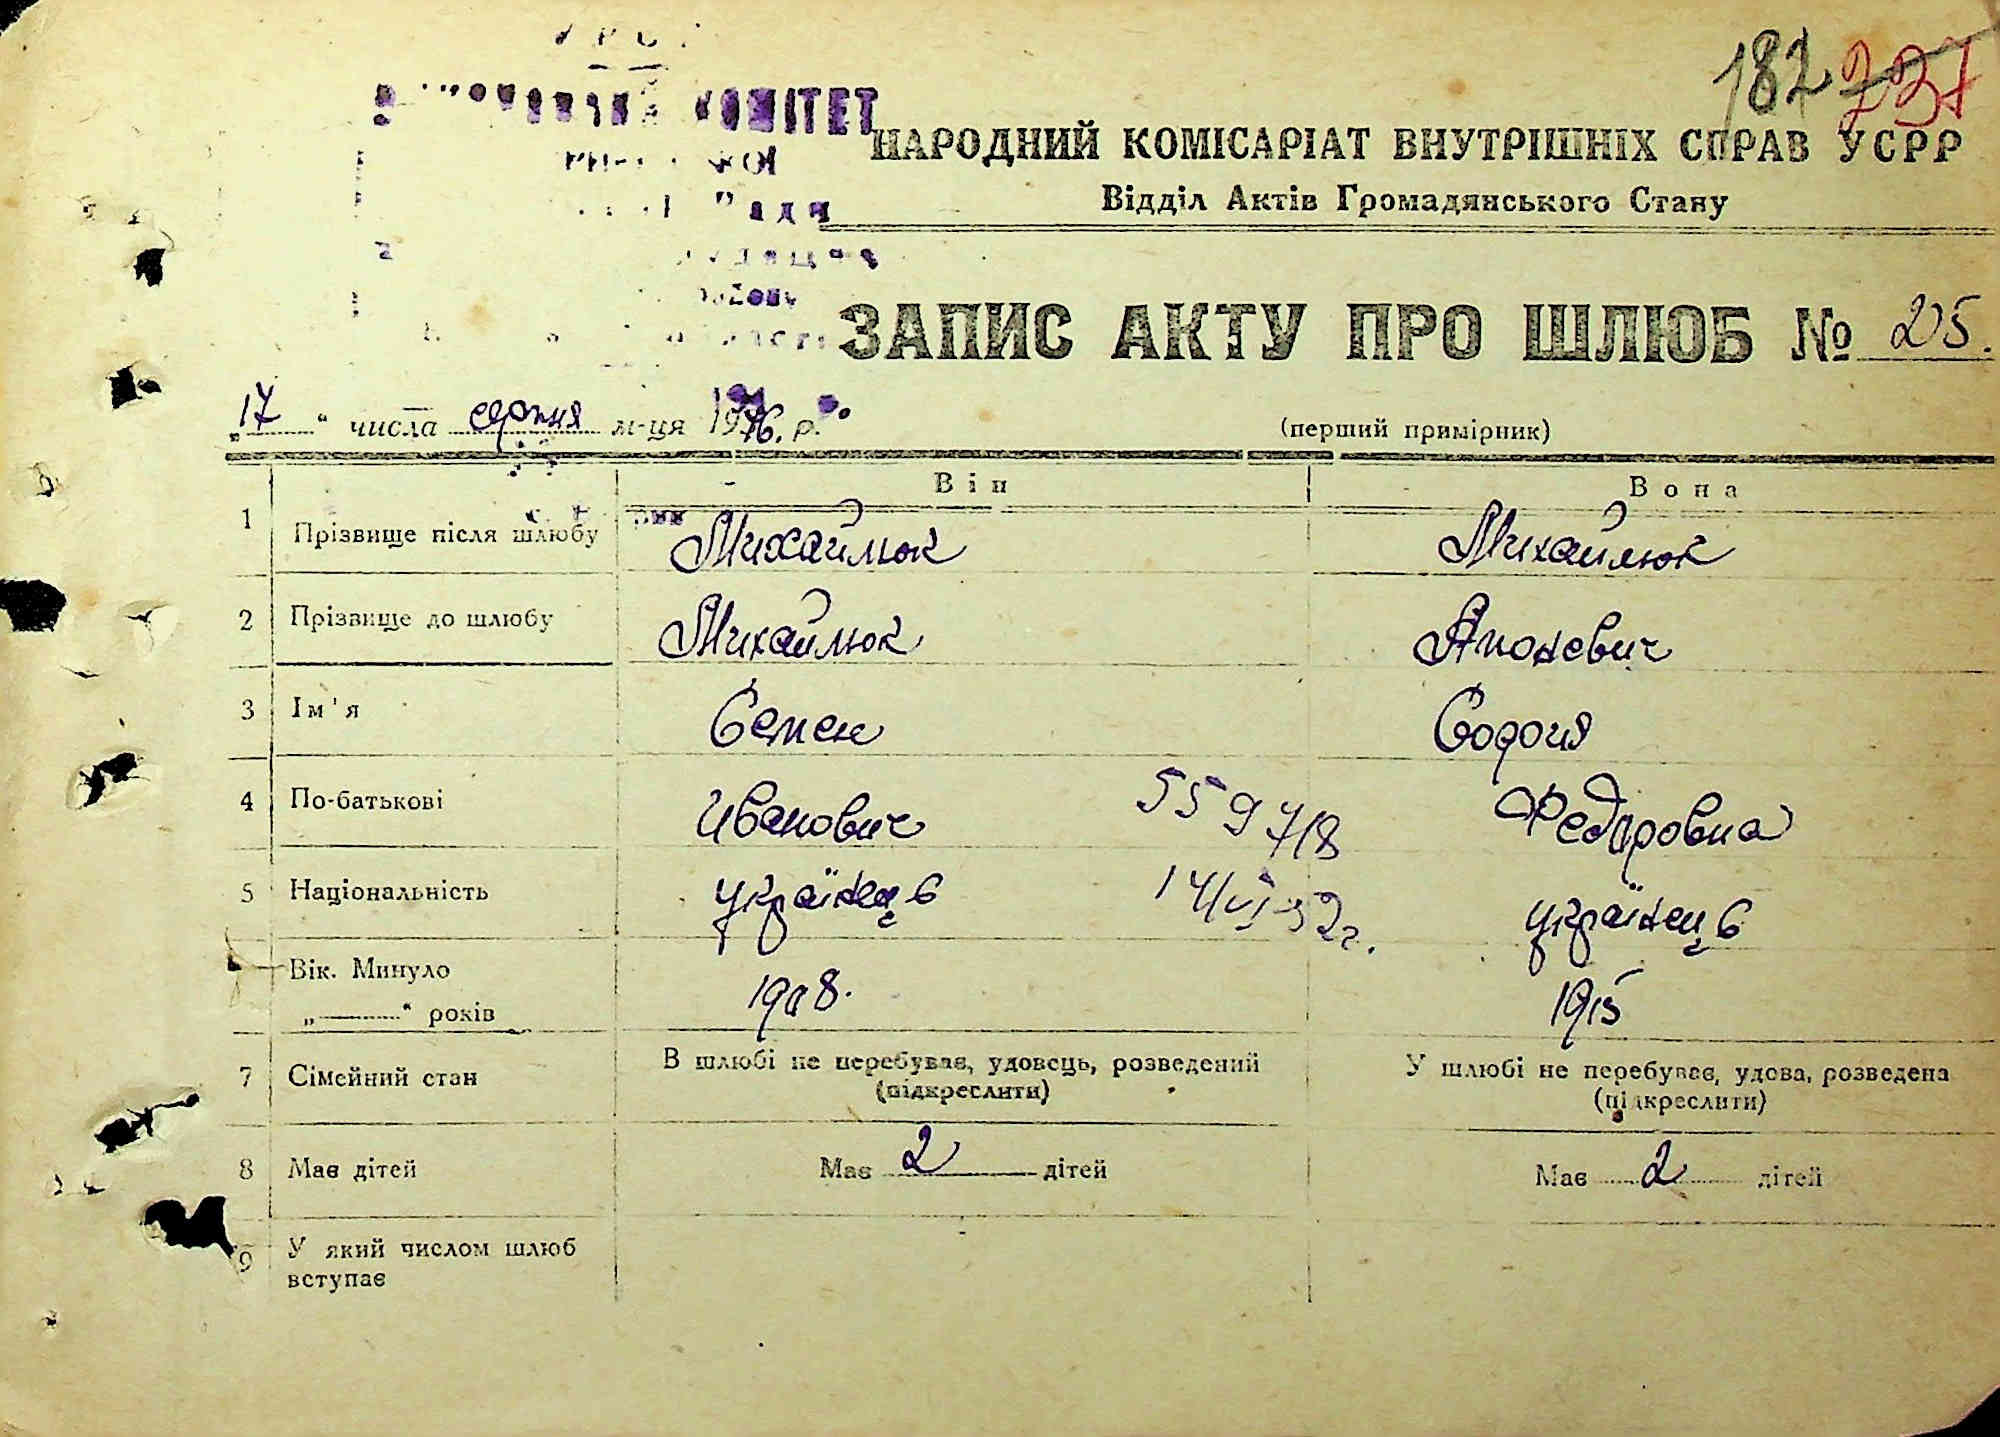 182 737
КОМІТЕТ
НАРОДНИЙ КОМІСАРІАТ ВНУТРІШНІХ СПРАВ УСРР
Ради
Відділ Актів Громадянського Стану
ЗАПИС АКТУ ПРО ШЛЮБ № 25.
„17“ числа серпня м-ця 1946. р.
(перший примірник)
Він Вона
1 Прізвище після шлюбу Михайлюк Михайлюк
2 Прізвище до шлюбу Михайлюк
3 Ім'я Семен Софія
4 По-батькові Иванович 559718 Федоровна
5 Національність українец ь 14/VI-52г. українец ь
Вік. Минуло
„———“ років 1908. 1915
7 Сімейний стан В шлюбі не перебуває, удовець, розведений У шлюбі не перебуває, удова, розведена
(підкреслити) (підкреслити)
8 Має дітей Має 2 дітей Має 2 дітей
9 У який числом шлюб
вступає